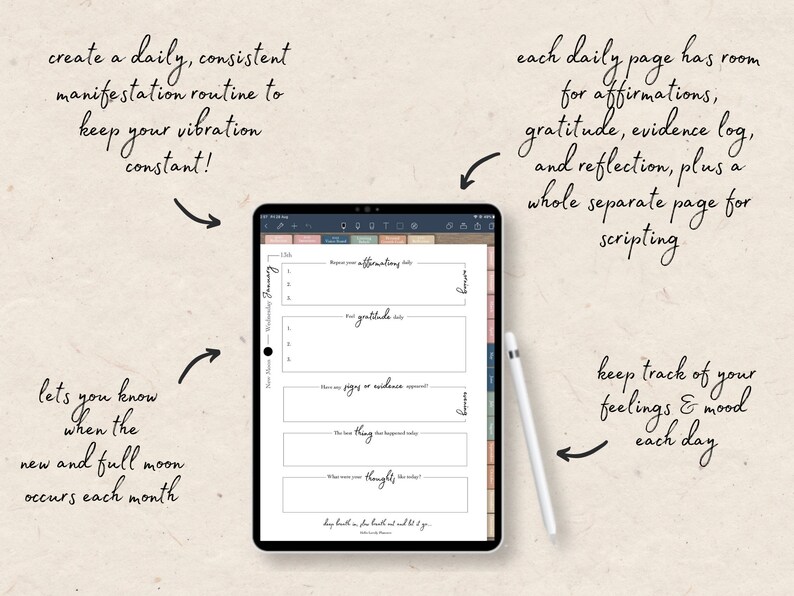 create a daily, consistent
manifestation routine to
keep your vibration
constant!
each daily page has room
for affirmations,
gratitude, evidence log,
and reflection, plus a
whole separate page for
scripting
13th
Repeat your affirmations daily
1.
2.
3.
morning
Wednesday January
Feel gratitude daily
1.
2.
3.
New Moon
Have any signs or evidence appeared?
evening
The best thing that happened today
What were your thoughts like today?
deep breath in, slow breath out and let it go...
lets you know
when the
new and full moon
occurs each month
keep track of your
feelings & mood
each day